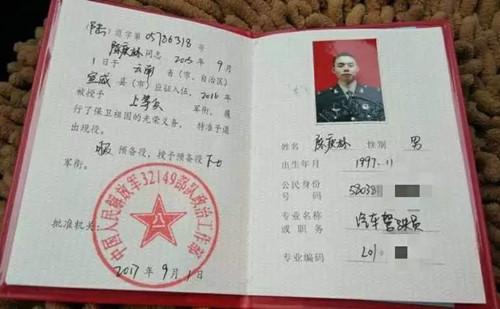 (陆)退字第05786318号
陈庆林同志2015年9月
1日于云南省(市、自治区)
宣威县(市)应征入伍,2016年
被授予上等兵军衔,履
行了保卫祖国的光荣义务,特准予退
出现役。
服预备役,授予预备役下士
军衔。
中国人民解放军32149部队政治工作部
批准机关:
2017年9月1日
姓名 陈庆林 性别 男
出生年月 1997.11
公民身份
号码
专业名称
或职务 汽车驾驶员
专业编码 201